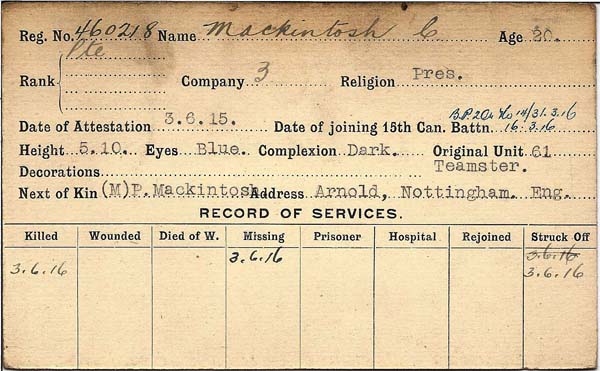 Reg. No. 460218 Name Mackintosh C Age 20.
Rank Pte Company 3 Religion Pres.
B.P.2
Date of Attestation 3.6.15. Date of joining 15th Can. Battn. 16.3.16
Height 5.10. Eyes Blue. Complexion Dark. Original Unit 61
Decorations Teamster.
Next of Kin (M)P.Mackintosh Address Arnold, Nottingham. Eng.
RECORD OF SERVICES.
Killed Wounded Died of W. Missing Prisoner Hospital Rejoined Struck Off
3.6.16 3.6.16
3.6.16 3.6.16